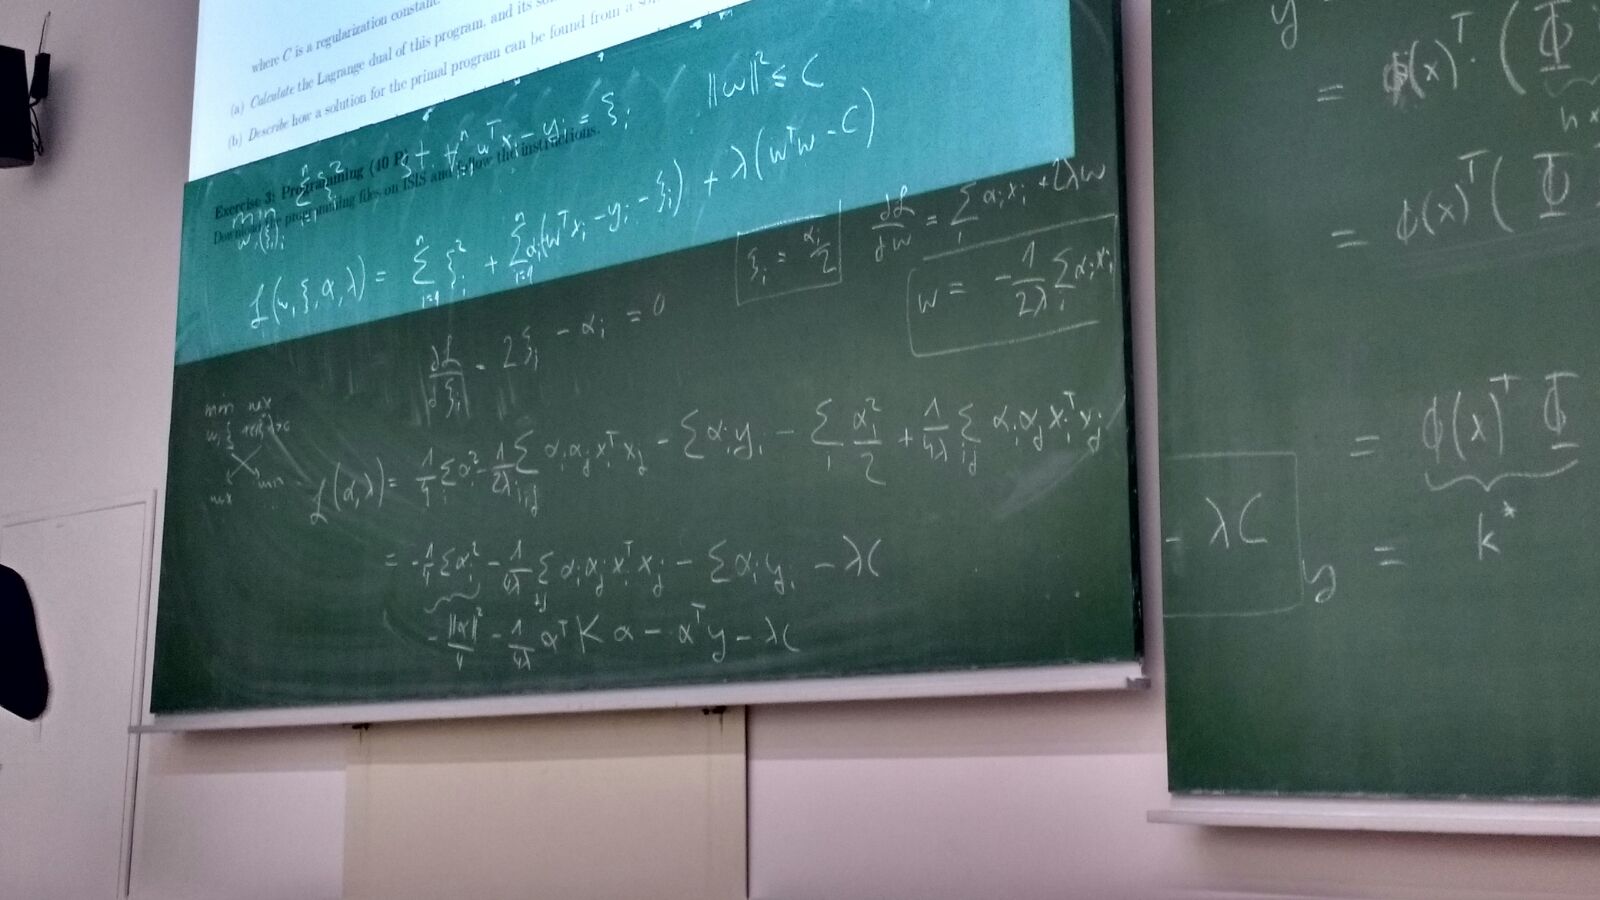 where C is a regularization constant
(a) Calculate the Lagrange dual of this program, and its
(b) Describe how a solution for the primal program can be found from a
Exercise 3: Programming (40 P)
Download the programming files on ISIS and follow the instructions.
min_{w,(ξ_i)_i} Σ^n ξ_i^2 s.t. ∀_{i=1}^n w^T x_i - y_i = ξ_i ||w||^2 ≤ C
ℒ(w, ξ, α, λ) = Σ_{i=1}^n ξ_i^2 + Σ_{i=1}^n α_i(w^T x_i - y_i - ξ_i) + λ(w^T w - C)
∂ℒ/∂ξ_i = 2ξ_i - α_i = 0
ξ_i = α_i/2
∂ℒ/∂w = Σ_i α_i x_i + 2λw
w = -1/2λ Σ_i α_i x_i
min max
w, ξ
max min
ℒ(α, λ) = 1/4 Σ α_i^2 - 1/2λ Σ_{i,j} α_i α_j x_i^T x_j - Σ α_i y_i - Σ_i α_i^2/2 + 1/4λ Σ_{ij} α_i α_j x_i^T x_j
= -1/4 Σ α_i^2 - 1/4λ Σ_{ij} α_i α_j x_i^T x_j - Σ α_i y_i - λC
-||α||^2/4 - 1/4λ α^T K α - α^T y - λC
- λC
y
= ϕ(x)^T · (Φ
= ϕ(x)^T (Φ
= ϕ(x)^T Φ
k*
y =